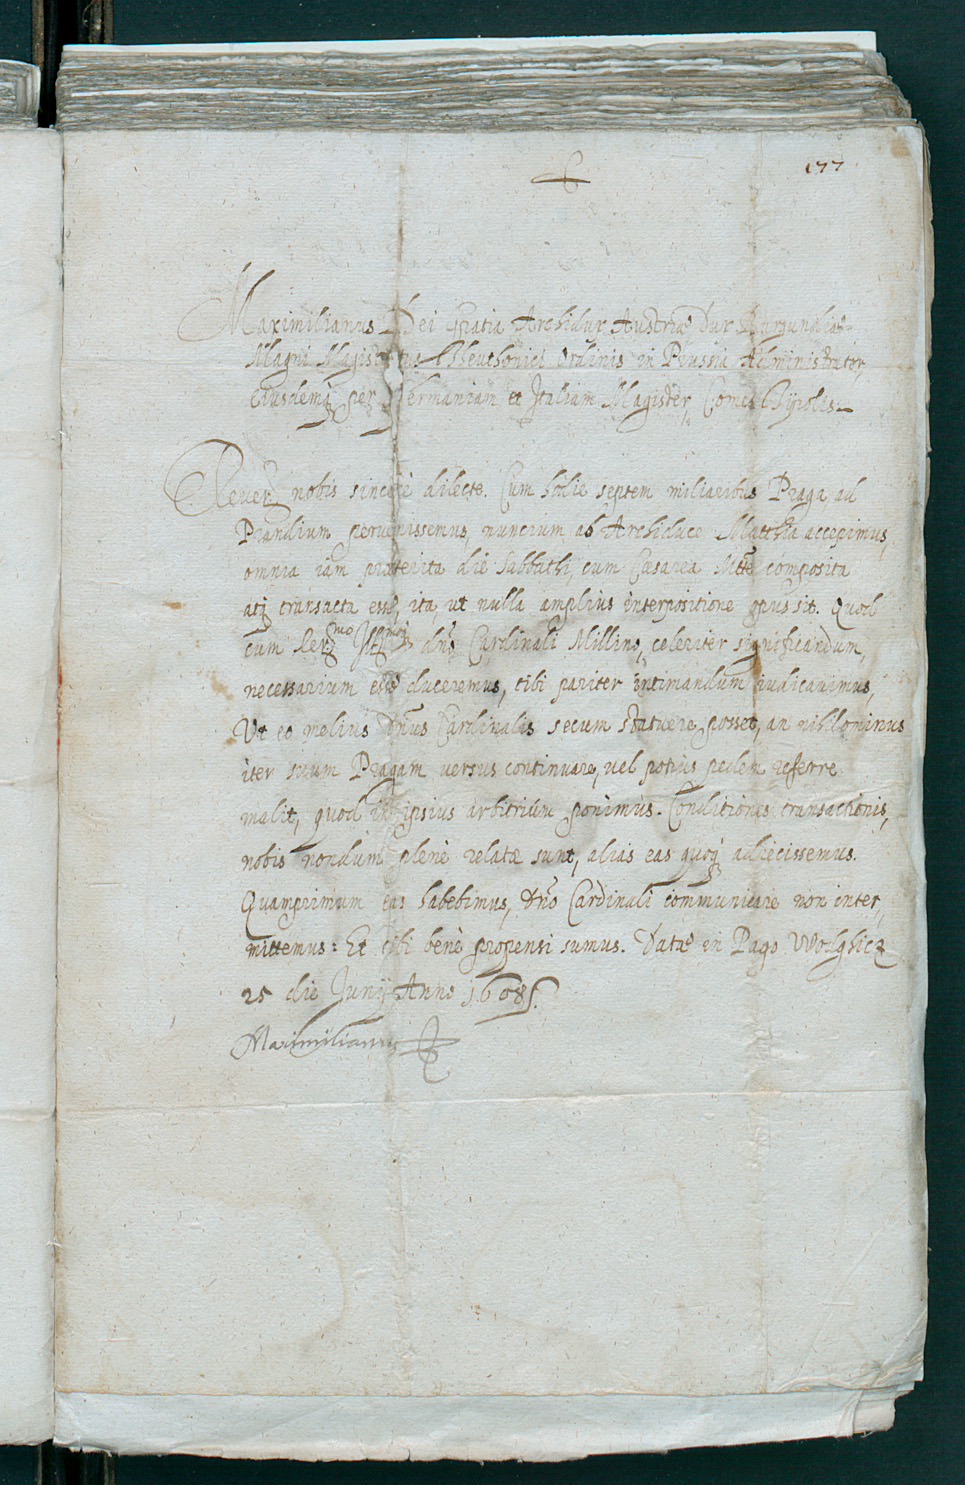 177
Maximilianus Dei gratia Archidux Austriæ Dux Burgundiæ
Magni Magistratus Theuthonici Ordinis in Prussia Administrator,
Eiusdemq per Germaniam et Italiam Magister, Comes Tÿrolis
Reuerd nobis sincerè dilecte. Cum hodie septem miliaribus Praga, ad
Prandium peruenissemus, nuncium ab Archiduce Matthia accepimus,
omnia iam præterita die sabbathi, cum Cæsarea Mtte composita
atq transacta esse, ita ut nulla amplius interpositione opus sit. Quod
cum Reu mo Ill mo dno Cardinali Millino, celeriter significandum,
necessarium esse duceremus, tibi pariter intimandum iudicauimus,
Ut eo melius Dnus Cardinalis secum statuere posset, an nihilominus
iter suum Pragam versus continuare, uel potius pedem referre
malit, quod in ipsius arbitrium ponimus. Conditiones transactionis,
nobis nondum plenè relatæ sunt, alias eas quoq adiecissemus.
Quamprimum eas habebimus, dno Cardinali communicare non inter,
mittemus: Et tibi benè propensi sumus. Datæ in Pago
25 die Junÿ Anno 1608.
Maximilianus